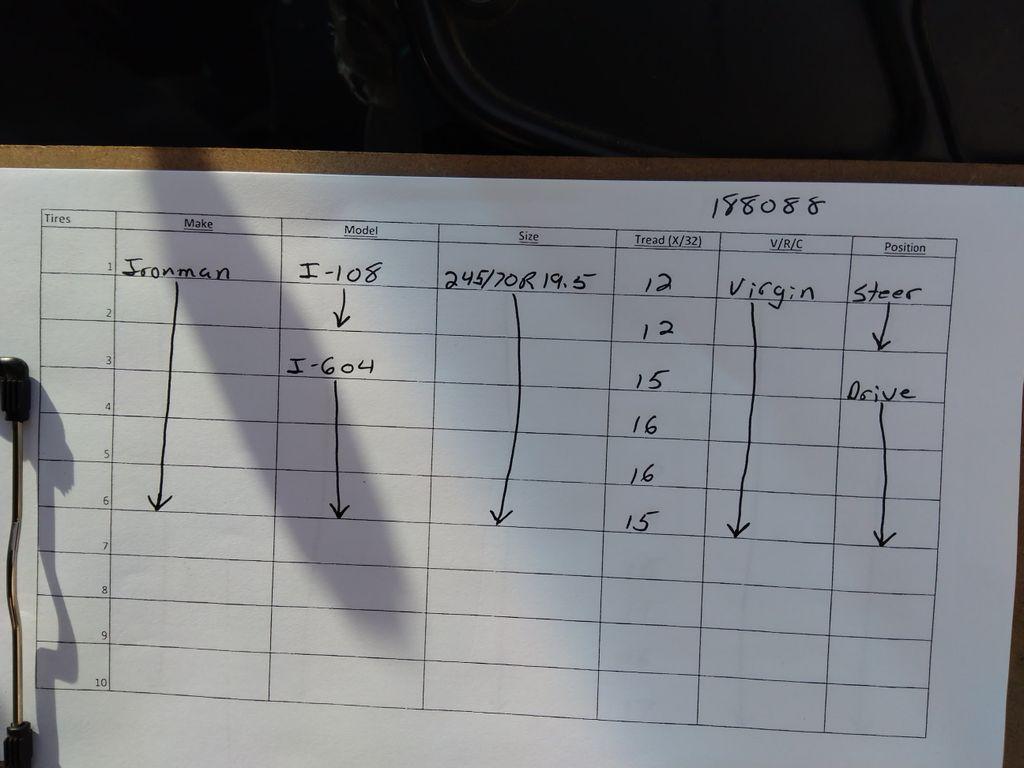 188088
Tires Make Model Size Tread (X/32) V/R/C Position
1 Ironman I-108 245/70R 19.5 12 Virgin Steer
2 12
3 I-604 15 Drive
4 16
5 16
6 15
7
8
9
10